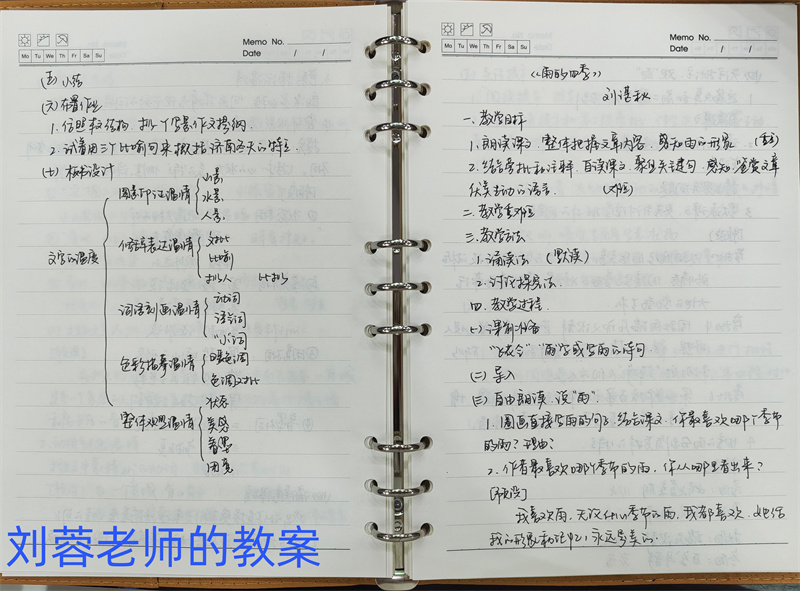 Memo No.
Mo Tu We Th Fr Sa Su
Date / /
(五) 小结
(六) 布置作业
1. 仿照教材结构, 拟一个写景作文提纲
2. 试着用三个比喻句来概括济南冬天的特点.
(七) 板书设计
文字的温度
图景印证温情
山景
水景
人景
修辞表达温情
对比
比喻
拟人 比拟
词语刻画温情
动词
语气词
"小"词
色彩描摹温情
暖色调
色调对比
整体观照温情
状态
美感
意境
Memo No.
Mo Tu We Th Fr Sa Su
Date / /
《雨的四季》
刘湛秋
一. 教学目标
1. 朗读课文, 整体把握文章内容, 感知雨的形象 (重点)
2. 结合旁批和注解, 自读课文, 聚焦关键句, 感知鉴赏文章
优美生动的语言. (难点)
二. 教学重难点
三. 教学方法
1. 诵读法 (默读)
2. 讨论探究法.
四. 教学过程.
(一) 课前准备
"飞花令" "雨"字或写雨的诗句
(二) 导入
(三) 自由朗读, 说"雨".
1. 圈画直接写雨的句子, 结合课文, 你最喜欢哪个季节
的雨? 理由?
2. 作者最喜欢哪个季节的雨, 你从哪里看出来?
[预设]
我喜欢雨, 无论什么季节的雨, 我都喜欢. 她给
我的形象和记忆, 永远是美的.
刘蓉老师的教案